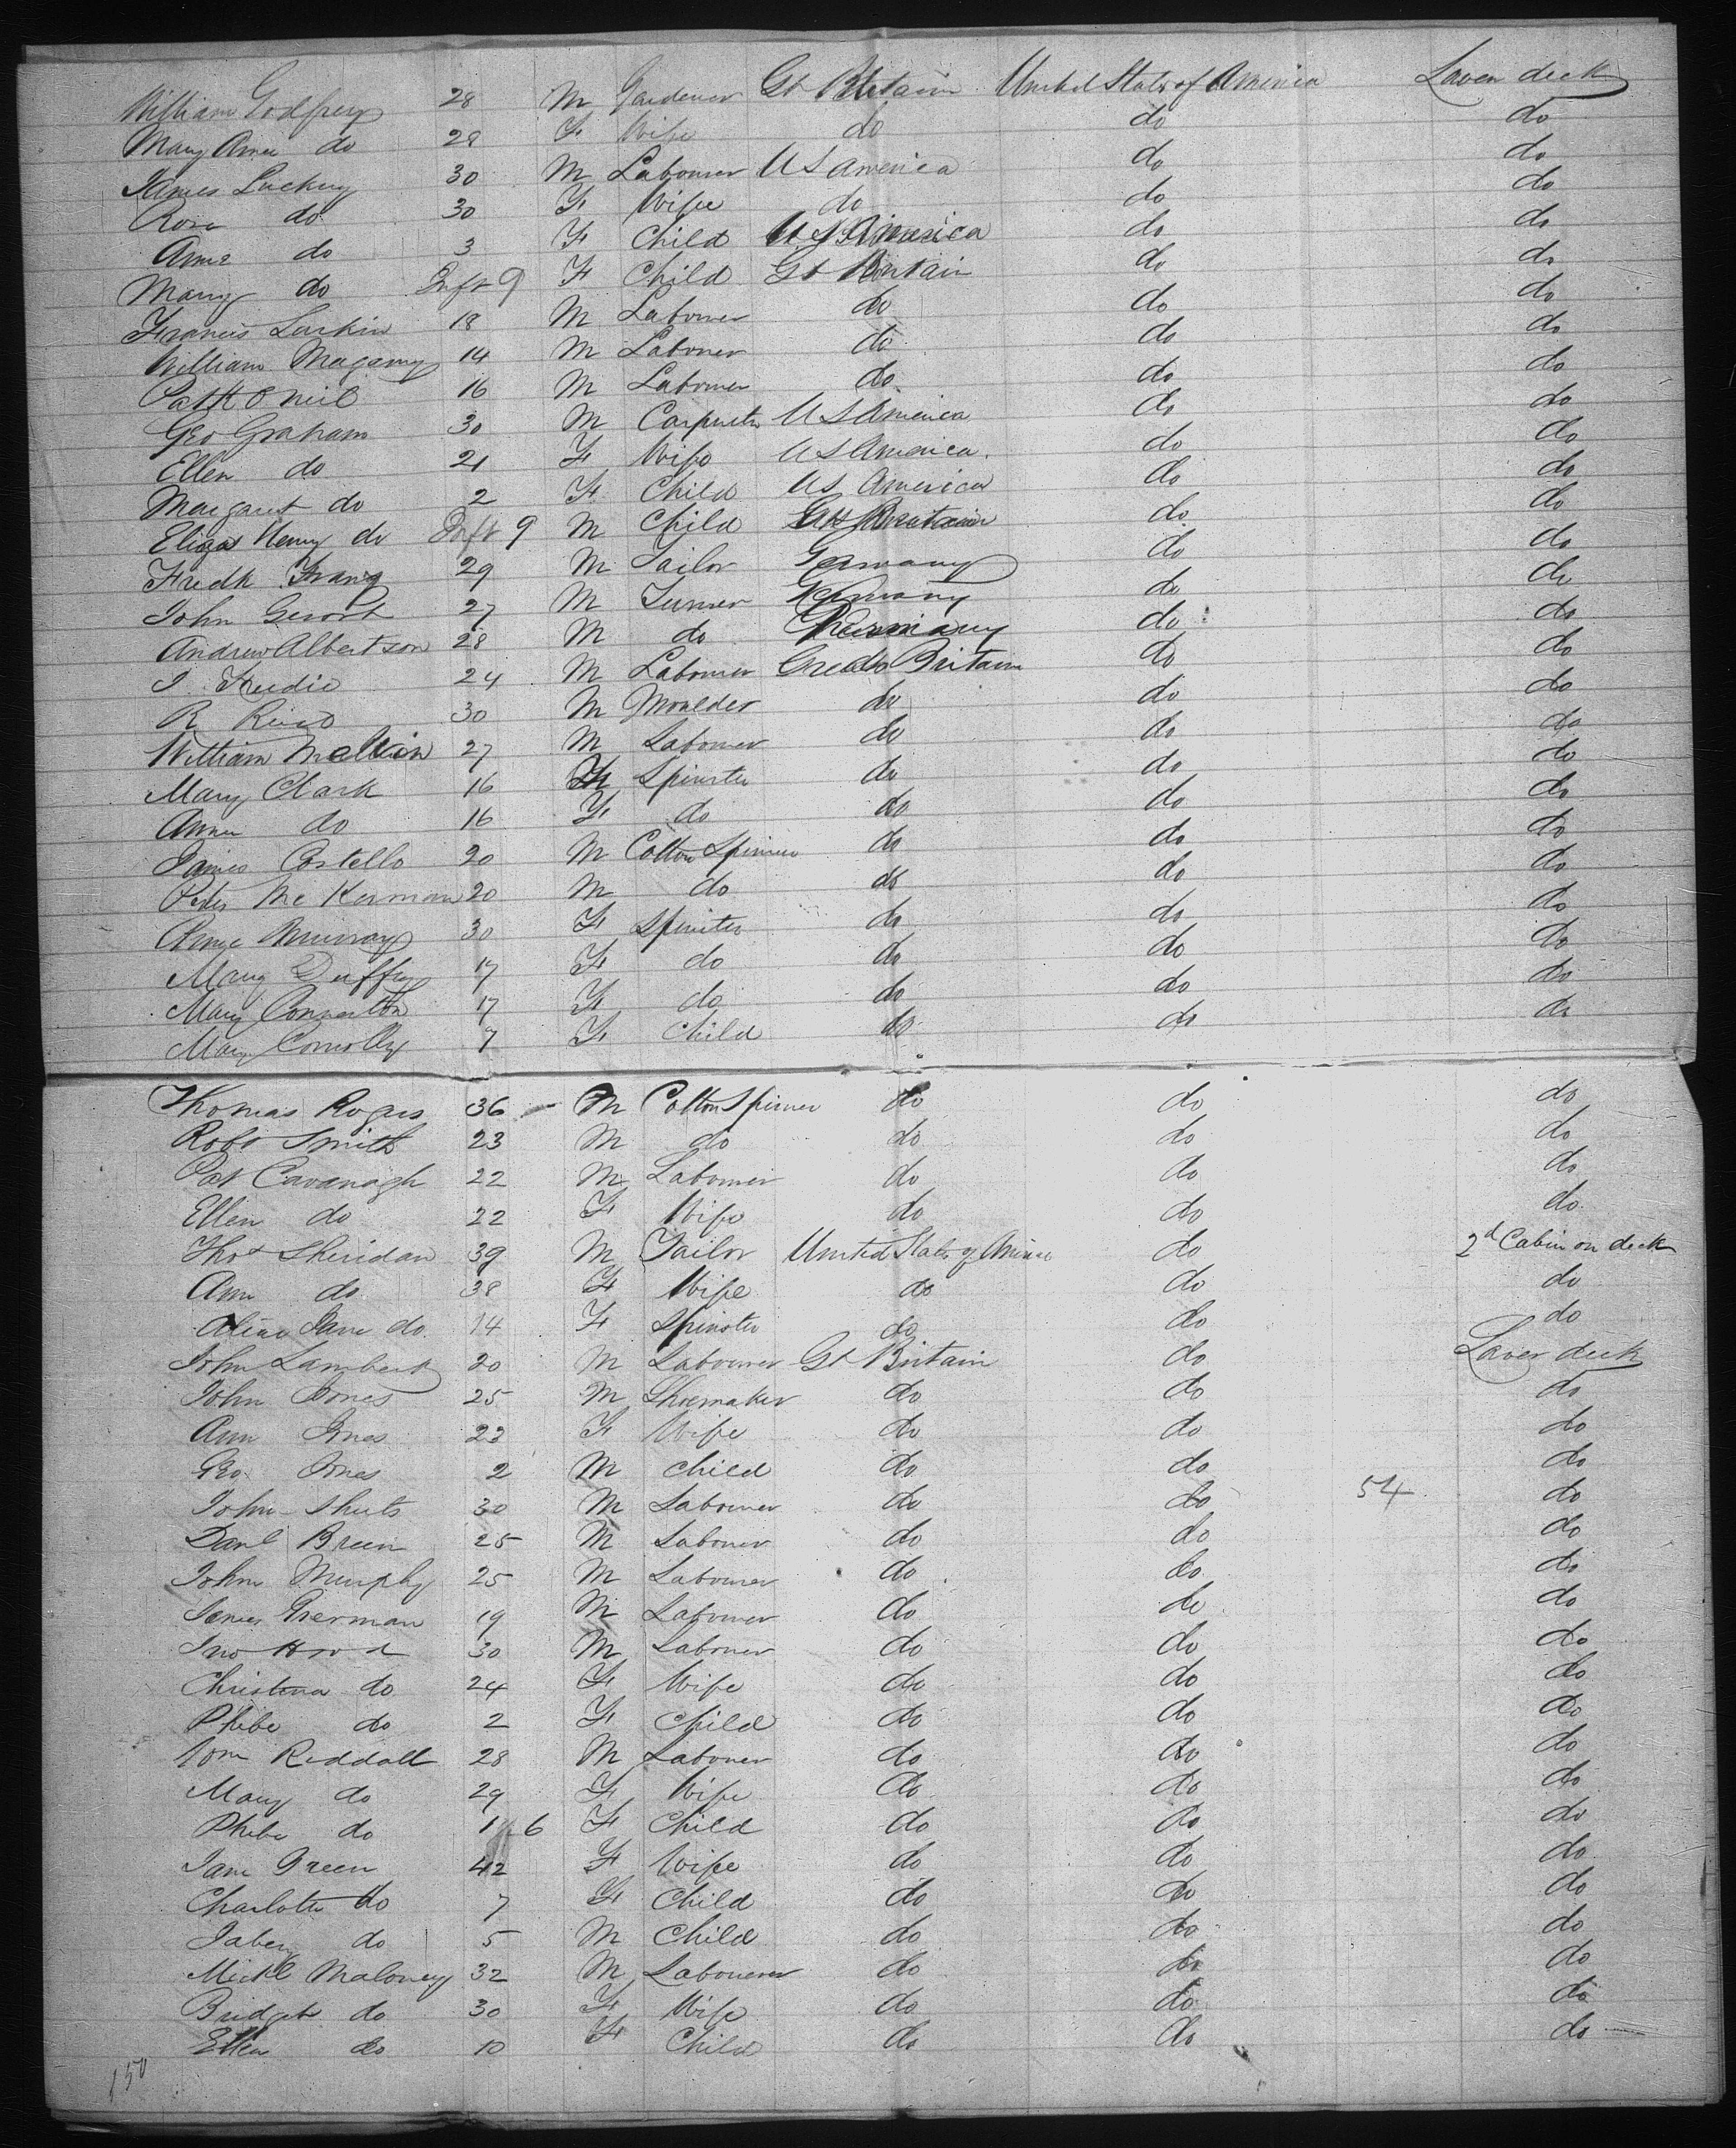 William Godfrey 28 M Gardener Gt Britain United States of America Lower deck
Mary Ann do 28 F Wife do do do
James Luckey 30 M Labourer US America do do
Rosa do 30 F Wife do do do
Anne do 3 F Child US America do do
Mary do Inft 9 F Child Gt Britain do do
Francis Larkin 18 M Labourer do do do
William Magamy 14 M Labourer do do do
Patk O Neil 16 M Labourer do do do
Geo Graham 30 M Carpenter US America do do
Ellen do 21 F Wife US America do do
Margaret do 2 F Child US America do do
Henry do Inft 9 M Child Gt Britain do do
Fredk Franz 29 M Tailor Germany do do
John 27 M Turner Germany do do
Andrew Albertson 28 M do Germany do do
J 24 M Labourer Great Britain do do
R 30 M Moulder do do do
William 27 M Labourer do do do
Mary Clark 16 F Spinster do do do
Anne do 16 F do do do do
James Costello 20 M Cotton Spinner do do do
Peter Mc Kerman 20 M do do do do
Murray 30 F Spinster do do do
Mary Duffy 17 F do do do do
Mary Connerton 17 F do do do do
Mary Connolly 7 F Child do do do
Thomas Rogers 36 M Cotton Spinner do do do
Robt Smith 23 M do do do do
Pat Cavanagh 22 M Labourer do do do
Ellen do 22 F Wife do do do
Thos Sheridan 39 M Tailor United States of America do 2d Cabin on deck
Ann do 38 F Wife do do do
Jane do 14 F Spinster do do do
John Lambert 20 M Labourer Gt Britain do Lower deck
John Jones 25 M Shoemaker do do do
Ann Jones 23 F Wife do do do
Geo Jones 2 M Child do do do
John Shuts 30 M Labourer do do 54 do
Danl Breen 25 M Labourer do do do
John Murphy 25 M Labourer do do do
James Gherman 19 M Labourer do do do
Jno Hood 30 M Labourer do do do
Christina do 24 F Wife do do do
Phebe do 2 F Child do do do
Wm Reddall 28 M Labourer do do do
Mary do 29 F Wife do do do
Phebe do 1 6 F Child do do do
Jane Green 42 F Wife do do do
Charlotte do 7 F Child do do do
Jabez do 5 M Child do do do
Michl Maloney 32 M Labourer do do do
Bridget do 30 F Wife do do do
Ellen do 10 F Child do do do
150